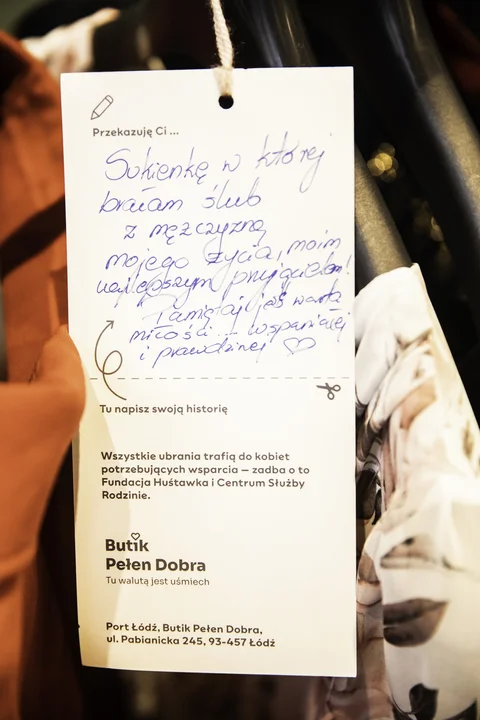 Przekazuję Ci ...
Sukienkę w której
brałam ślub
z mężczyzną
mojego życia, moim
najlepszym przyjacielem!
Pamiętaj jeś warta
miłości ... wspaniałej
i prawdziwej
Tu napisz swoją historię
Wszystkie ubrania trafią do kobiet
potrzebujących wsparcia — zadba o to
Fundacja Huśtawka i Centrum Służby
Rodzinie.
Butik
Pełen Dobra
Tu walutą jest uśmiech
Port Łódź, Butik Pełen Dobra,
ul. Pabianicka 245, 93-457 Łódź